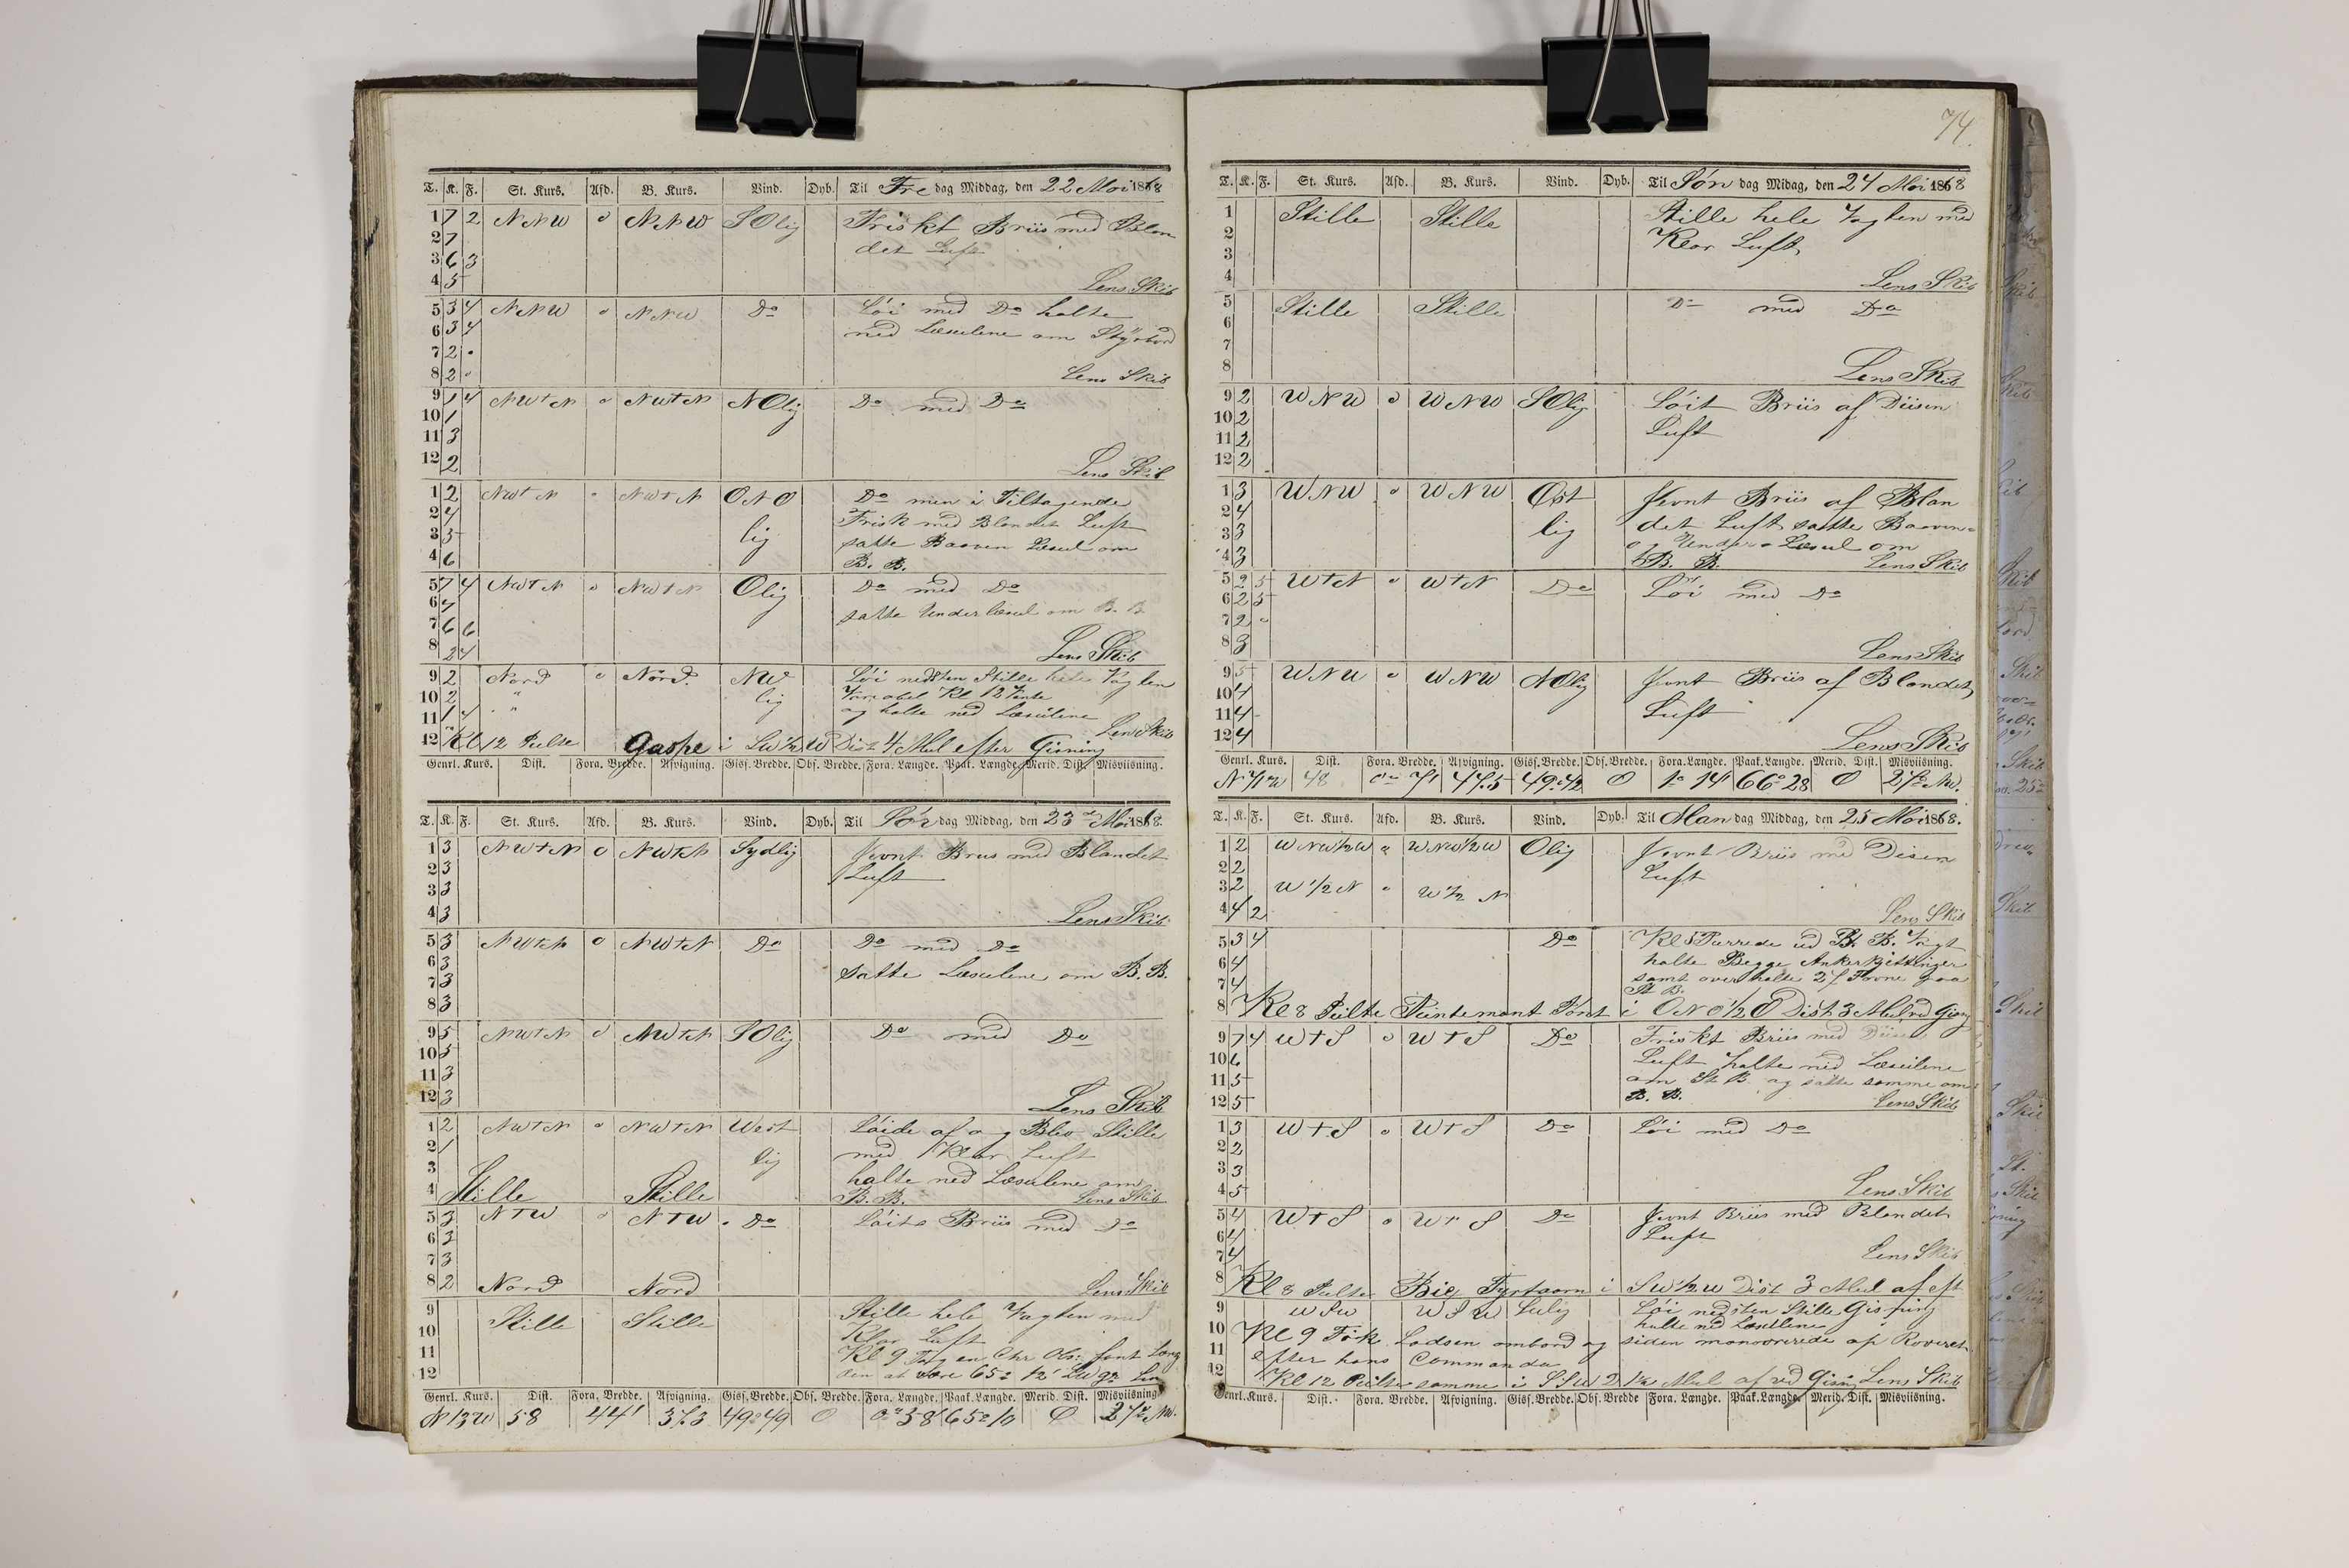 T. K. F. St. Kurs. Afd. B. Kurs. Vind. Dyb. Til Fre dag Middag, den 22 Mai 1868
1 7 2 NNW o NNW SOlig Friskt Briis med Blan
2 7 det Luft
3 6 3
4 5 Lens Skib
5 3 4 NNW o NNW Do Løi med Do halte
6 3 4 ned Læseilene om Styrbord
7 2 •
8 2 • Lens Skib
9 1 4 NWtN o NWtN NOlig Do med Do
10 1
11 3
12 2 Lens Skib
1 2 NWtN o NWtN ONO Do men i Tiltagende
2 4 Frisk med Blandet Luft
3 5 lig satte Baaven Læseil om
4 6 B. B.
5 7 4 NWtN o NWtN Olig Do med Do
6 7 satte Underlæseil om B. B
7 6 6
8 2 4 Lens Skib
9 2 Nord o Nord. NW Løi nedsten Stille hele Vagten
10 2 " lig Kl 12
11 1 4 " og halte ned Læseilene Lens Skib
12 Kl 12 Peilte Gaspe i SW½W Dist 4 Mul efter Gisning
Genrl. Kurs. Dist. Fora. Bredde. Afvigning. Gisf. Bredde. Obs. Bredde. Fora. Længde. Paak. Længde. Merid. Dist. Misviisning.
T. K. F. St. Kurs. Afd. B. Kurs. Vind. Dyb. Til Lør dag Middag, den 23de Mai 1868.
1 3 NWtN o NWtN Sydlig Jevnt Briis med Blandet
2 3 Luft
3 3
4 3 Lens Skib.
5 3 NWtN o NWtN Do Do med Do
6 3 satte Læseilene om B. B.
7 3
8 3
9 5 NWtN o NWtN SOlig Do med Do
10 5
11 3
12 3 Lens Skib
1 2 NWtN o NWtN West Løide af og Blev Stille
2 1 lig med Klar Luft
3 halte ned Læseilene om
4 Stille Stille B. B. Lens Skib
5 3 NTW o NTW Do Løits Briis med Do
6 3
7 3
8 2 Nord Nord Lens Skib
9 Stille Stille Stille hele Vagten med
10 Klar Luft
11 Kl 9 Tog en Chr Obs: fant Læng
12 den at være 65° 12'
Genrl. Kurs. Dist. Fora. Bredde. Afvigning. Gisf. Bredde. Obs. Bredde. Fora. Længde. Paak. Længde. Merid. Dist. Misviisning.
58 44' 37.3 49°49 O 0°58' 65°10 O 2¼ NW.
74.
T. K. F. St. Kurs. Afd. B. Kurs. Vind. Dyb. Til Søn dag Midag, den 24 Mai 1868
1 Stille Stille Stille hele Vagten med
2 Klar Luft
3
4 Lens Skib
5 Stille Stille Do med Do
6
7
8 Lens Skib
9 2 WNW o WNW SOlig Løit Briis af Diisen
10 2 Luft
11 2
12 2
1 3 WNW o WNW Øst Jevnt Briis af Blan
2 4 det Luft satte Baaven-
3 3 lig og Under-Læseil om
4 3 B. B. Lens Skib
5 2 5 WtN o WtN Do Løi med Do
6 2 5
7 2 -
8 3 Lens Skib
9 5 WNW o WNW NOlig Jevnt Briis af Blandet
10 4 Luft
11 4
12 4 Lens Skib
Genrl. Kurs. Dist. Fora. Bredde. Afvigning. Gisf. Bredde. Obs. Bredde. Fora. Længde. Paak. Længde. Merid. Dist. Misviisning.
48 47.5 49°42 O 1° 14' 66°28 O 2¼ NW.
T. K. F. St. Kurs. Afd. B. Kurs. Vind. Dyb. Til Man dag Middag, den 25 Mai 1868.
1 2 WNW½W o WNW½W Olig Jevnt Briis med Disen
2 2 Luft
3 2 W½N o W½N
4 4 2 Lens Skib
5 3 4 Do Kl 5 Purrede ud B. B. Vagt
6 4 halte Begge Ankerkjettinger
7 4 samt overhalte 25 Favne paa
St B.
8 Kl 8 Peilte Pintemont Point i ONO½O Dist 3 Mul
9 7 4 WtS o WtS Do Friskt Briis med Diisen
10 6 Luft halte ned Læseilene
11 5 om St B. og satte samme om
12 5 B. B. Lens Skib
1 3 WtS o WtS Do Løi med Do
2 2
3 3
4 5 Lens Skib
5 4 WtS o WtS Do Jevnt Briis med Blandet
6 4 Luft
7 4 Lens Skib
8 Kl 8 Peilte Bic Fyrtaarn i SW½W Dist 3 Mul af eft
9 WSW WSW Løi nedsten Stille Gisning
halte ned Læseilene
10 Kl 9 Fik Lodsen ombord og siden manoverede
11 efter hans Commando
12 Kl 12 Peilte samme i SSW Mul af ved Gisn. Lens Skib
Genrl. Kurs. Dist. Fora. Bredde. Afvigning. Gisf. Bredde. Obs. Bredde Fora. Længde. Paak. Længde. Merid. Dist. Misviisning.